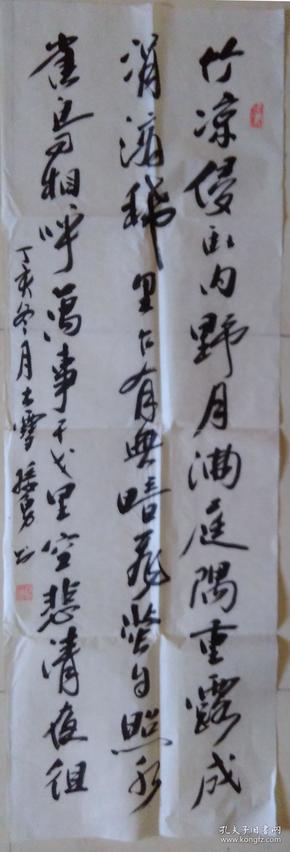 竹凉侵卧内野月满庭隅重露成
涓滴稀星乍有無暗飛螢自照水
宿鳥相呼萬事干戈里空悲清夜徂
丁亥冬月大雪
孔夫子旧书网